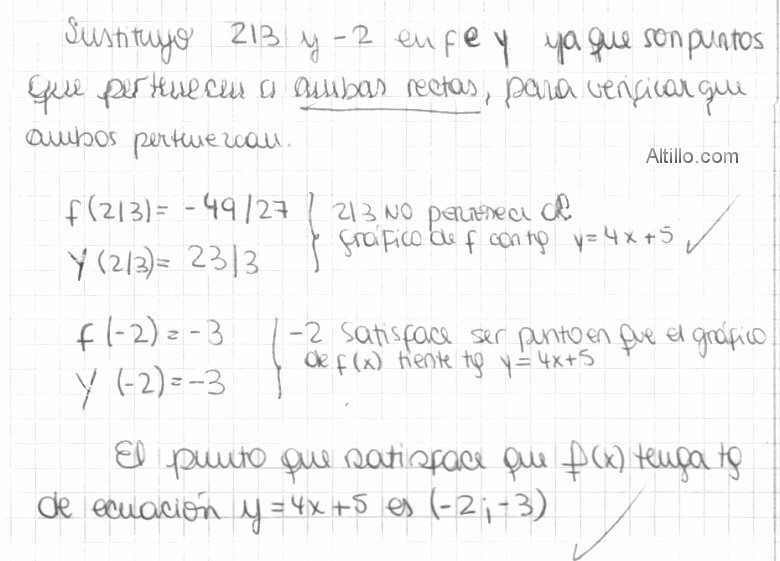 Sustituyo 2/3 y -2 en f e y ya que son puntos
que pertenecen a ambas rectas, para verificar que
ambos pertenezcan.
Altillo.com
f(2/3) = -49/27 } 2/3 NO pertenece al
gráfico de f con tg y=4x+5
y(2/3) = 23/3
f(-2) = -3 } -2 satisface ser punto en que el gráfico
de f(x) tiente tg y=4x+5
y(-2) = -3
El punto que satisface que f(x) tenga tg
de ecuación y=4x+5 es (-2;-3)